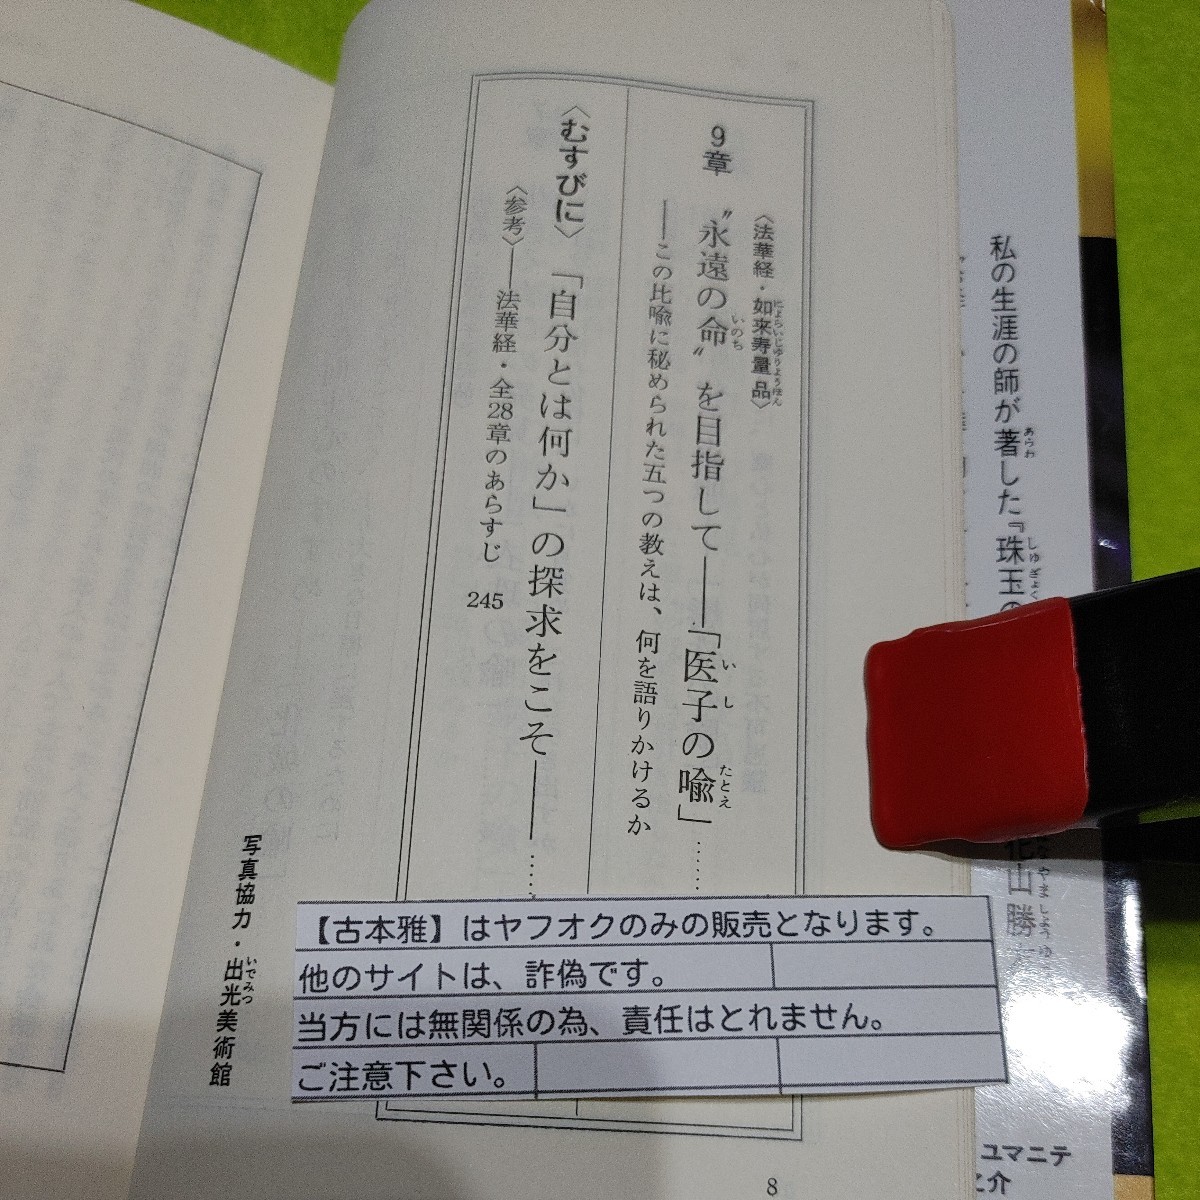 9章
〈法華経・如来寿量品〉
にょらいじゅりょうほん
〝永遠の命〟を目指して――「医子の喩」……
いのち
いし
たとえ
――この比喩に秘められた五つの教えは、何を語りかけるか
〈むすびに〉
「自分とは何か」の探求をこそ――……
〈参考〉――法華経・全28章のあらすじ 245
写真協力・出光美術館
いでみつ
8
【古本雅】はヤフオクのみの販売となります。
他のサイトは、詐偽です。
当方には無関係の為、責任はとれません。
ご注意下さい。
私の生涯の師が著した『珠玉の
あらわ
しゅぎょく
山勝
やましょうゆ
ユマニテ
介